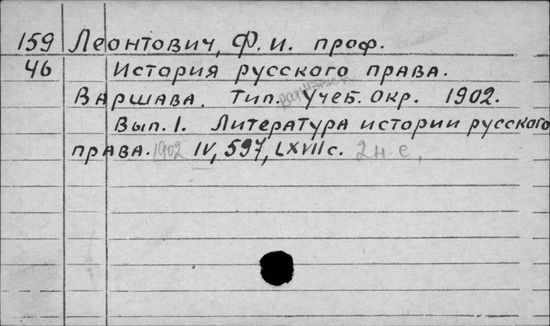 159 Леонтович, Ф. И. проф.
46 История русского права.
Варшава. Тип. Учеб. Окр. 1902.
Вып. 1. Литература истории русского
права. 1902 IV, 597, LXVII с. 2 н е,